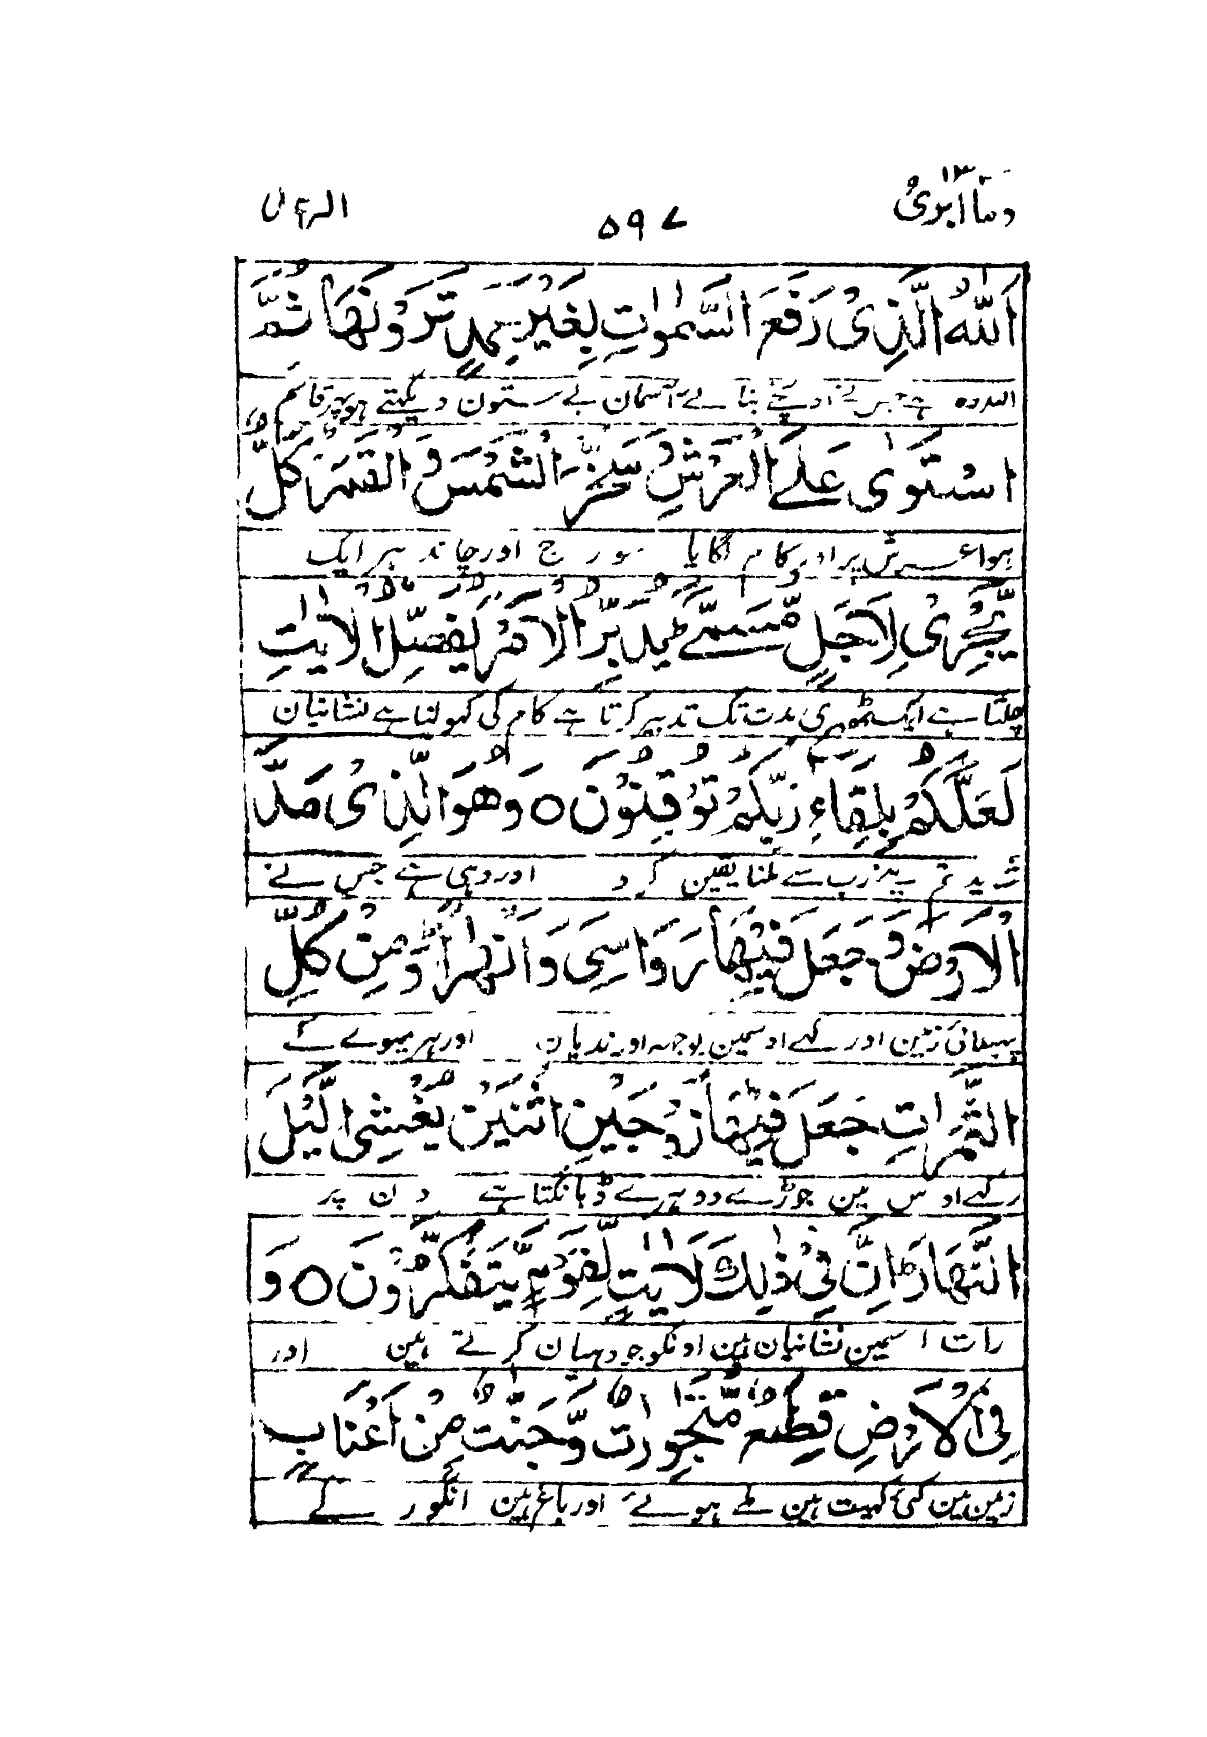 وماابرئ ۱۳
۵۹۷
الرعد
اَللّٰهُ الَّذِیْ رَفَعَ السَّمٰوٰتِ بِغَیْرِ عَمَدٍ تَرَوْنَهَا ثُمَّ
اللہ وہ ہے جس نے اونچے بنائے آسمان بے ستون دیکھتے ہو پھر قائم
اسْتَوٰی عَلَے الْعَرْشِ وَسَخَّرَ الشَّمْسَ وَ الْقَمَرَ کُلٌّ
ہوا عرش پر اور کام لگایا سورج اور چاند ہر ایک
یَّجْرِیْ لِاَجَلٍ مُّسَمًّے یُدَبِّرُ الْاَمْرَ یُفَصِّلُ الْاٰیٰتِ
چلتا ہے ایک ٹھہری مدت تک تدبیر کرتا ہے کام کی کہولتا ہے نشانیان
لَعَلَّکُمْ بِلِقَآءِ رَبِّکُمْ تُوْقِنُوْنَ ۝ وَهُوَ الَّذِیْ مَدَّ
شاید تم اپنے رب سے ملنا یقین کرو اور وہی ہے جس نے
الْاَرْضَ وَجَعَلَ فِیْهَا رَوَاسِیَ وَاَنْهٰرًا وَمِنْ کُلِّ
پہیلائی زمین اور رکہے اوسمین بوجہ اور ندیان اور ہر میوے کے
الثَّمَرٰتِ جَعَلَ فِیْهَا زَوْجَیْنِ اثْنَیْنِ یُغْشِی الَّیْلَ
رکہے اوس مین جوڑے دوہرے ڈہانکتا ہے دن پر
النَّهَارَ اِنَّ فِیْ ذٰلِكَ لَاٰیٰتٍ لِّقَوْمٍ یَّتَفَکَّرُوْنَ ۝ وَ
رات اسمین نشانیان ہین اونکو جو دہیان کرتے ہین اور
فِی الْاَرْضِ قِطَعٌ مُّتَجٰوِرٰتٌ وَّجَنّٰتٌ مِّنْ اَعْنَابٍ
زمین مین کئی کہیت ہین ملے ہوئے اور باغ ہین انگور کے